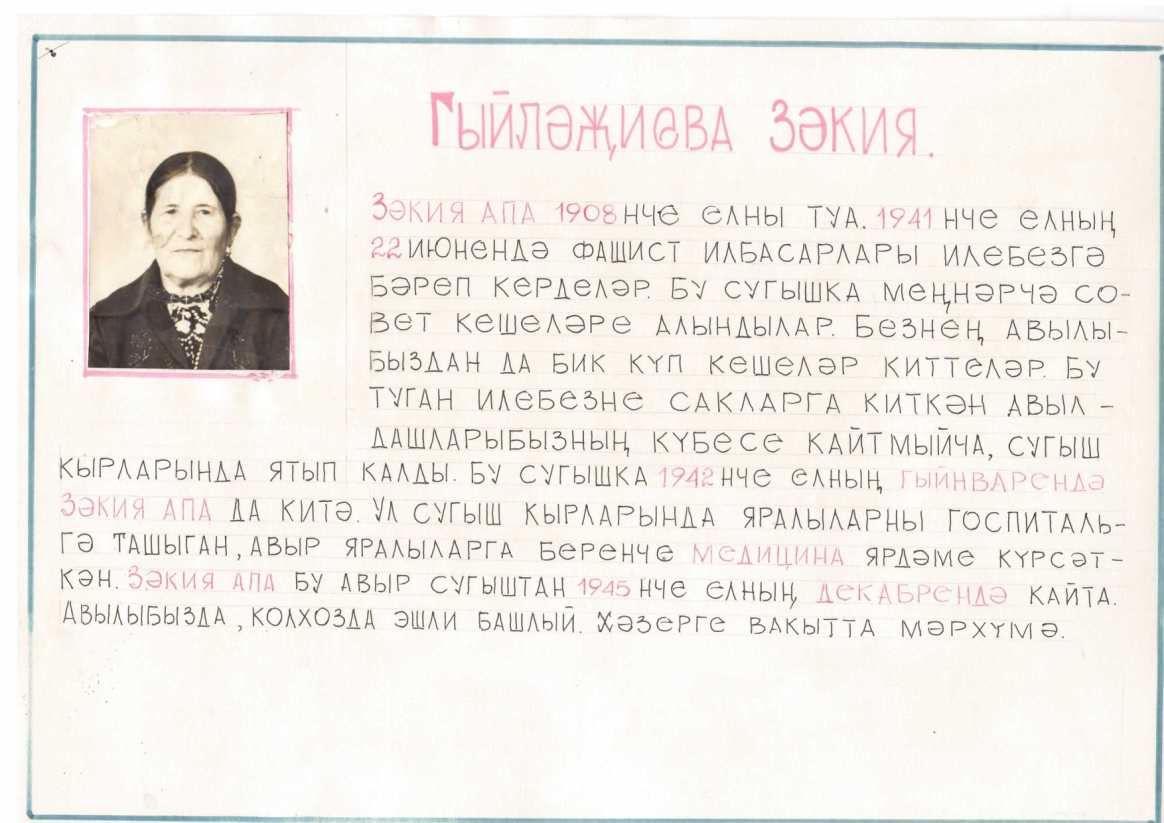 Гыйләҗиева Зәкия.
Зәкия апа 1908 нче елны туа. 1941 нче елның
22 июнендә фашист илбасарлары илебезгә
бәреп керделәр. Бу сугышка меңнәрчә со-
вет кешеләре алындылар. Безнең авылы-
быздан да бик күп кешеләр киттеләр. Бу
туган илебезне сакларга киткән авыл -
дашларыбызның күбесе кайтмыйча, сугыш
кырларында ятып калды. Бу сугышка 1942 нче елның гыйнварендә
Зәкия апа да китә. Ул сугыш кырларында яралыларны госпиталь-
гә ташыган, авыр яралыларга беренче медицина ярдәме күрсәт-
кән. Зәкия апа бу авыр сугыштан 1945 нче елның декабрендә кайта.
Авылыбызда, колхозда эшли башлый. Хәзерге вакытта мәрхүмә.